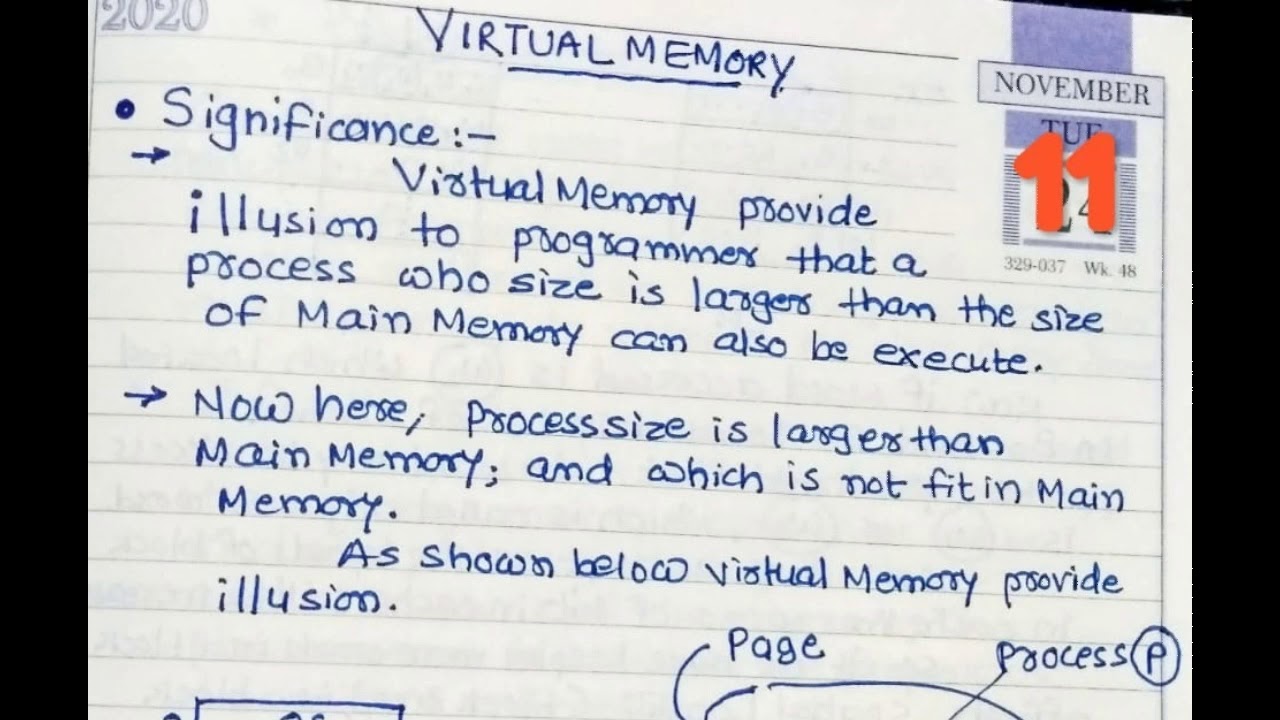 2020
VIRTUAL MEMORY
NOVEMBER
TUE
11
24
329-037 Wk. 48
• Significance :-
→ Virtual Memory provide
illusion to programmer that a
process who size is larger than the size
of Main Memory can also be execute.
→ Now here, Process size is larger than
Main Memory; and which is not fit in Main
Memory.
As shown below virtual Memory provide
illusion.
Page
Process P